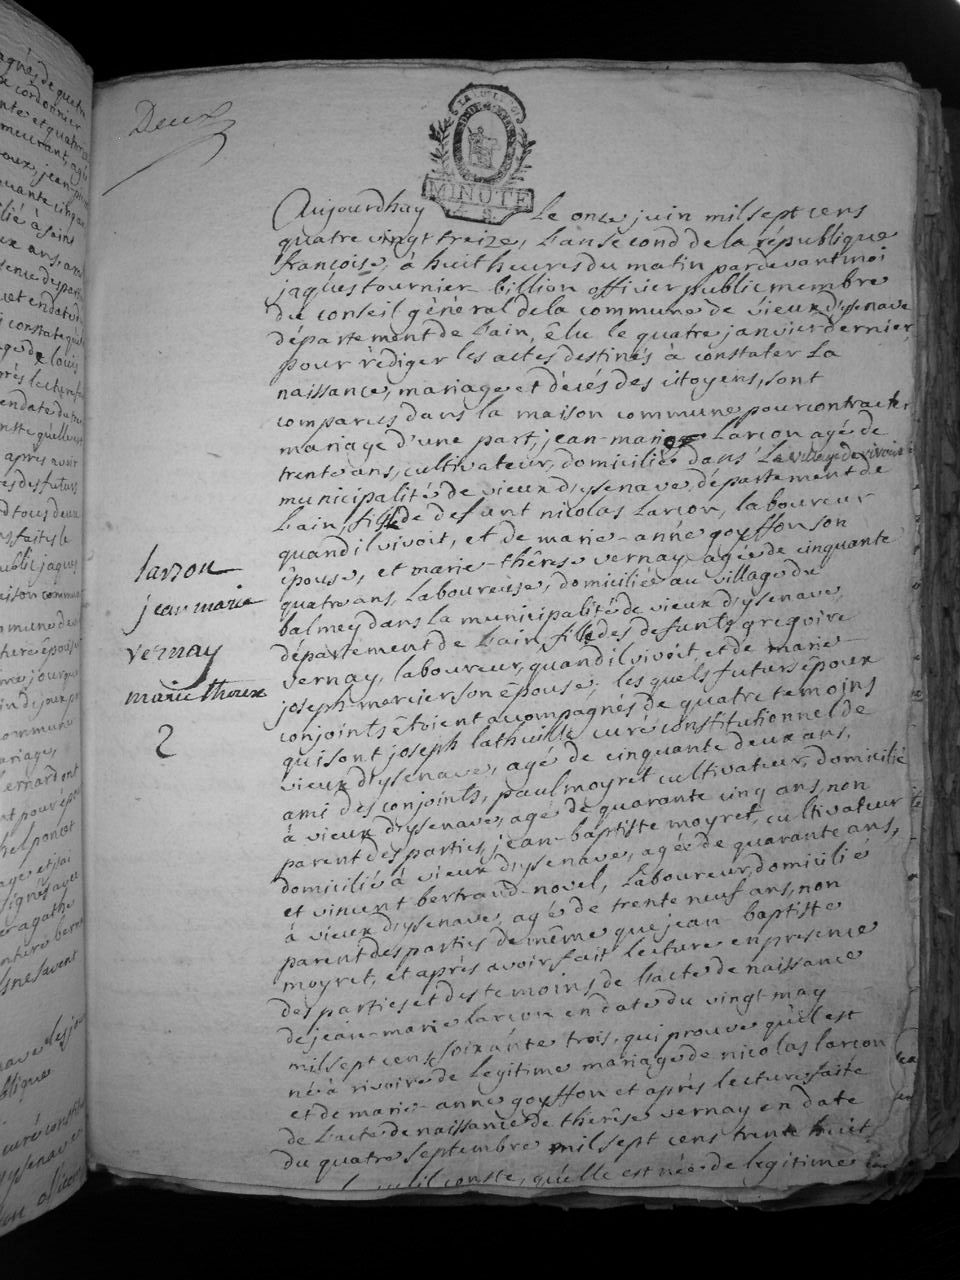 Deux
MINUTE
Aujourdhuy Le onze juin mil sept cens
quatre vingt treize, L'an second de la république
françoise, à huit heures du matin pardevant moi
jaques tournier-billion officier public membre
du conseil général de la commune de vieux d'ysenave
département de L'ain, êlu le quatre janvier dernier
pour rédiger les actes destinés a constater La
naissance, mariage et décés des citoyens, sont
comparus dans la maison commune pour contracter
mariage d'une part, jean-marie Larçon agé de
trente ans, cultivateur, domicilié dans Le village de rivoire
municipalité de vieux d'ysenave, département de
L'ain, fils de defunt nicolas Larçon, laboureur
quand il vivoit, et de marie-anne goyffon son
êpouse, et marie-thêrese vernay agée de cinquante
quatre ans, Laboureuse, domiciliée au village du
balmey dans la municipalité de vieux d'ysenave,
département de L'ain, fille des defunts gregoire
vernay, laboureur, quand il vivoit, et de marie
joseph mercier son êpouse, les quels futurs êpoux
conjoints êtoient acompagnés de quatre temoins
qui sont joseph lathuille curé constitutionnel de
vieux d'ysenave, agé de cinquante deux ans,
ami des conjoints, paul moyret cultivateur, domicilié
à vieux d'ysenave, agé de quarante cinq ans, non
parent des parties, jean-baptiste moyret, cultivateur
domicilié à vieux d'ysenave, agé de quarante ans,
et vincent bertrand-novel, Laboureur, domicilié
à vieux d'ysenave, agé de trente neuf ans, non
parent des parties de même que jean-baptiste
moyret, et après avoir fait lecture en presence
des parties et des temoins de L'acte de naissance
de jean-marie larçon en date du vingt may
mil sept cens soixante trois, qui prouve qu'il est
né à rivoire de legitime mariage de nicolas larçon
et de marie-anne goyffon et après lecture faite
de L'acte de naissance de thêrese vernay en date
du quatre septembre mil sept cens trente huit
il conste, qu'elle est née de legitime
larson
jean marie
vernay
marie therese
2